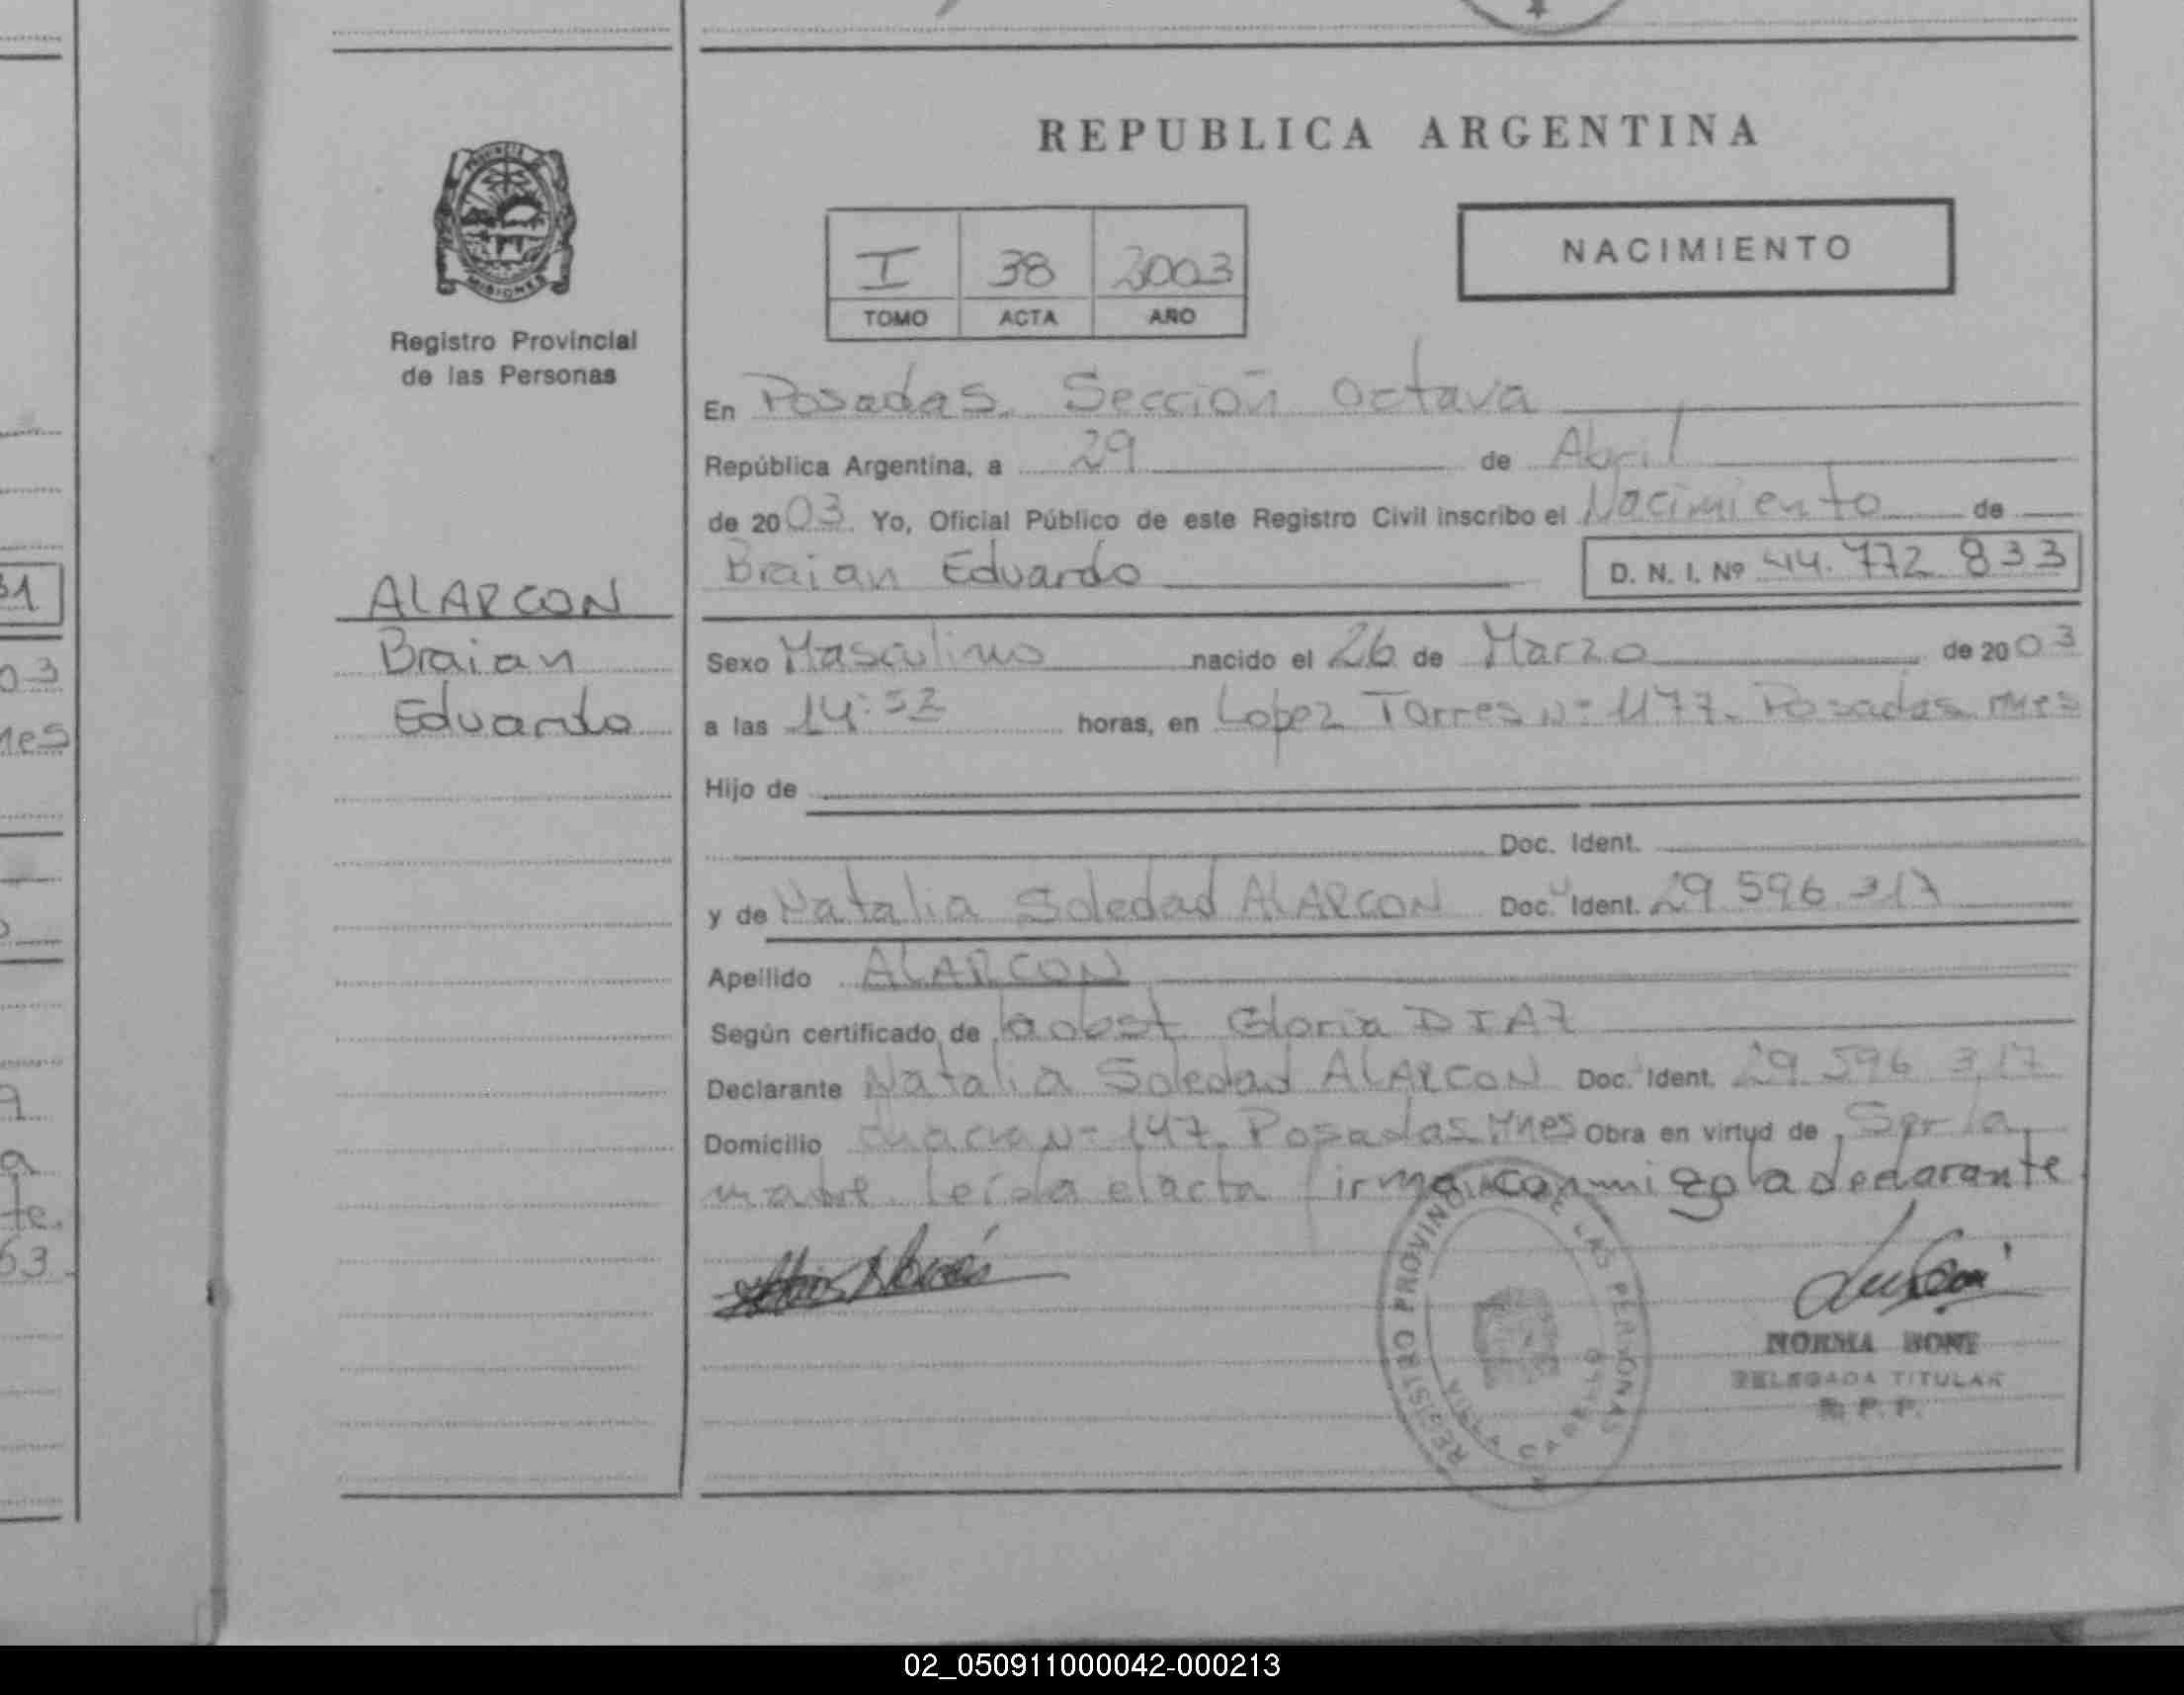 REPUBLICA ARGENTINA
NACIMIENTO
I 38 2003
TOMO ACTA AÑO
PROVINCIA DE
MISIONES
Registro Provincial
de las Personas
ALARCON
Braian
Eduardo
En Posadas. Sección Octava
República Argentina, a 29 de Abril
de 2003. Yo, Oficial Público de este Registro Civil inscribo el Nacimiento de
Braian Eduardo D. N. I. Nº 44.772.833
Sexo Masculino nacido el 26 de Marzo de 2003
a las 14:52 horas, en Lopez Torres Nº 1177. Posadas Mnes
Hijo de
Doc. Ident.
y de Natalia Soledad ALARCON Doc. Ident. 29.596.317
Apellido ALARCON
Según certificado de la obst Gloria DIAZ
Declarante Natalia Soledad ALARCON Doc. Ident. 29.596.317
Domicilio Chacra Nº 147. Posadas Mnes Obra en virtud de Ser la
madre. Leída el acta firma conmigo la declarante
REGISTRO PROVINCIAL DE LAS PERSONAS
NORMA BONE
DELEGADA TITULAR
R. P. P.
31
03
nes
9
a
te.
63
02_050911000042-000213